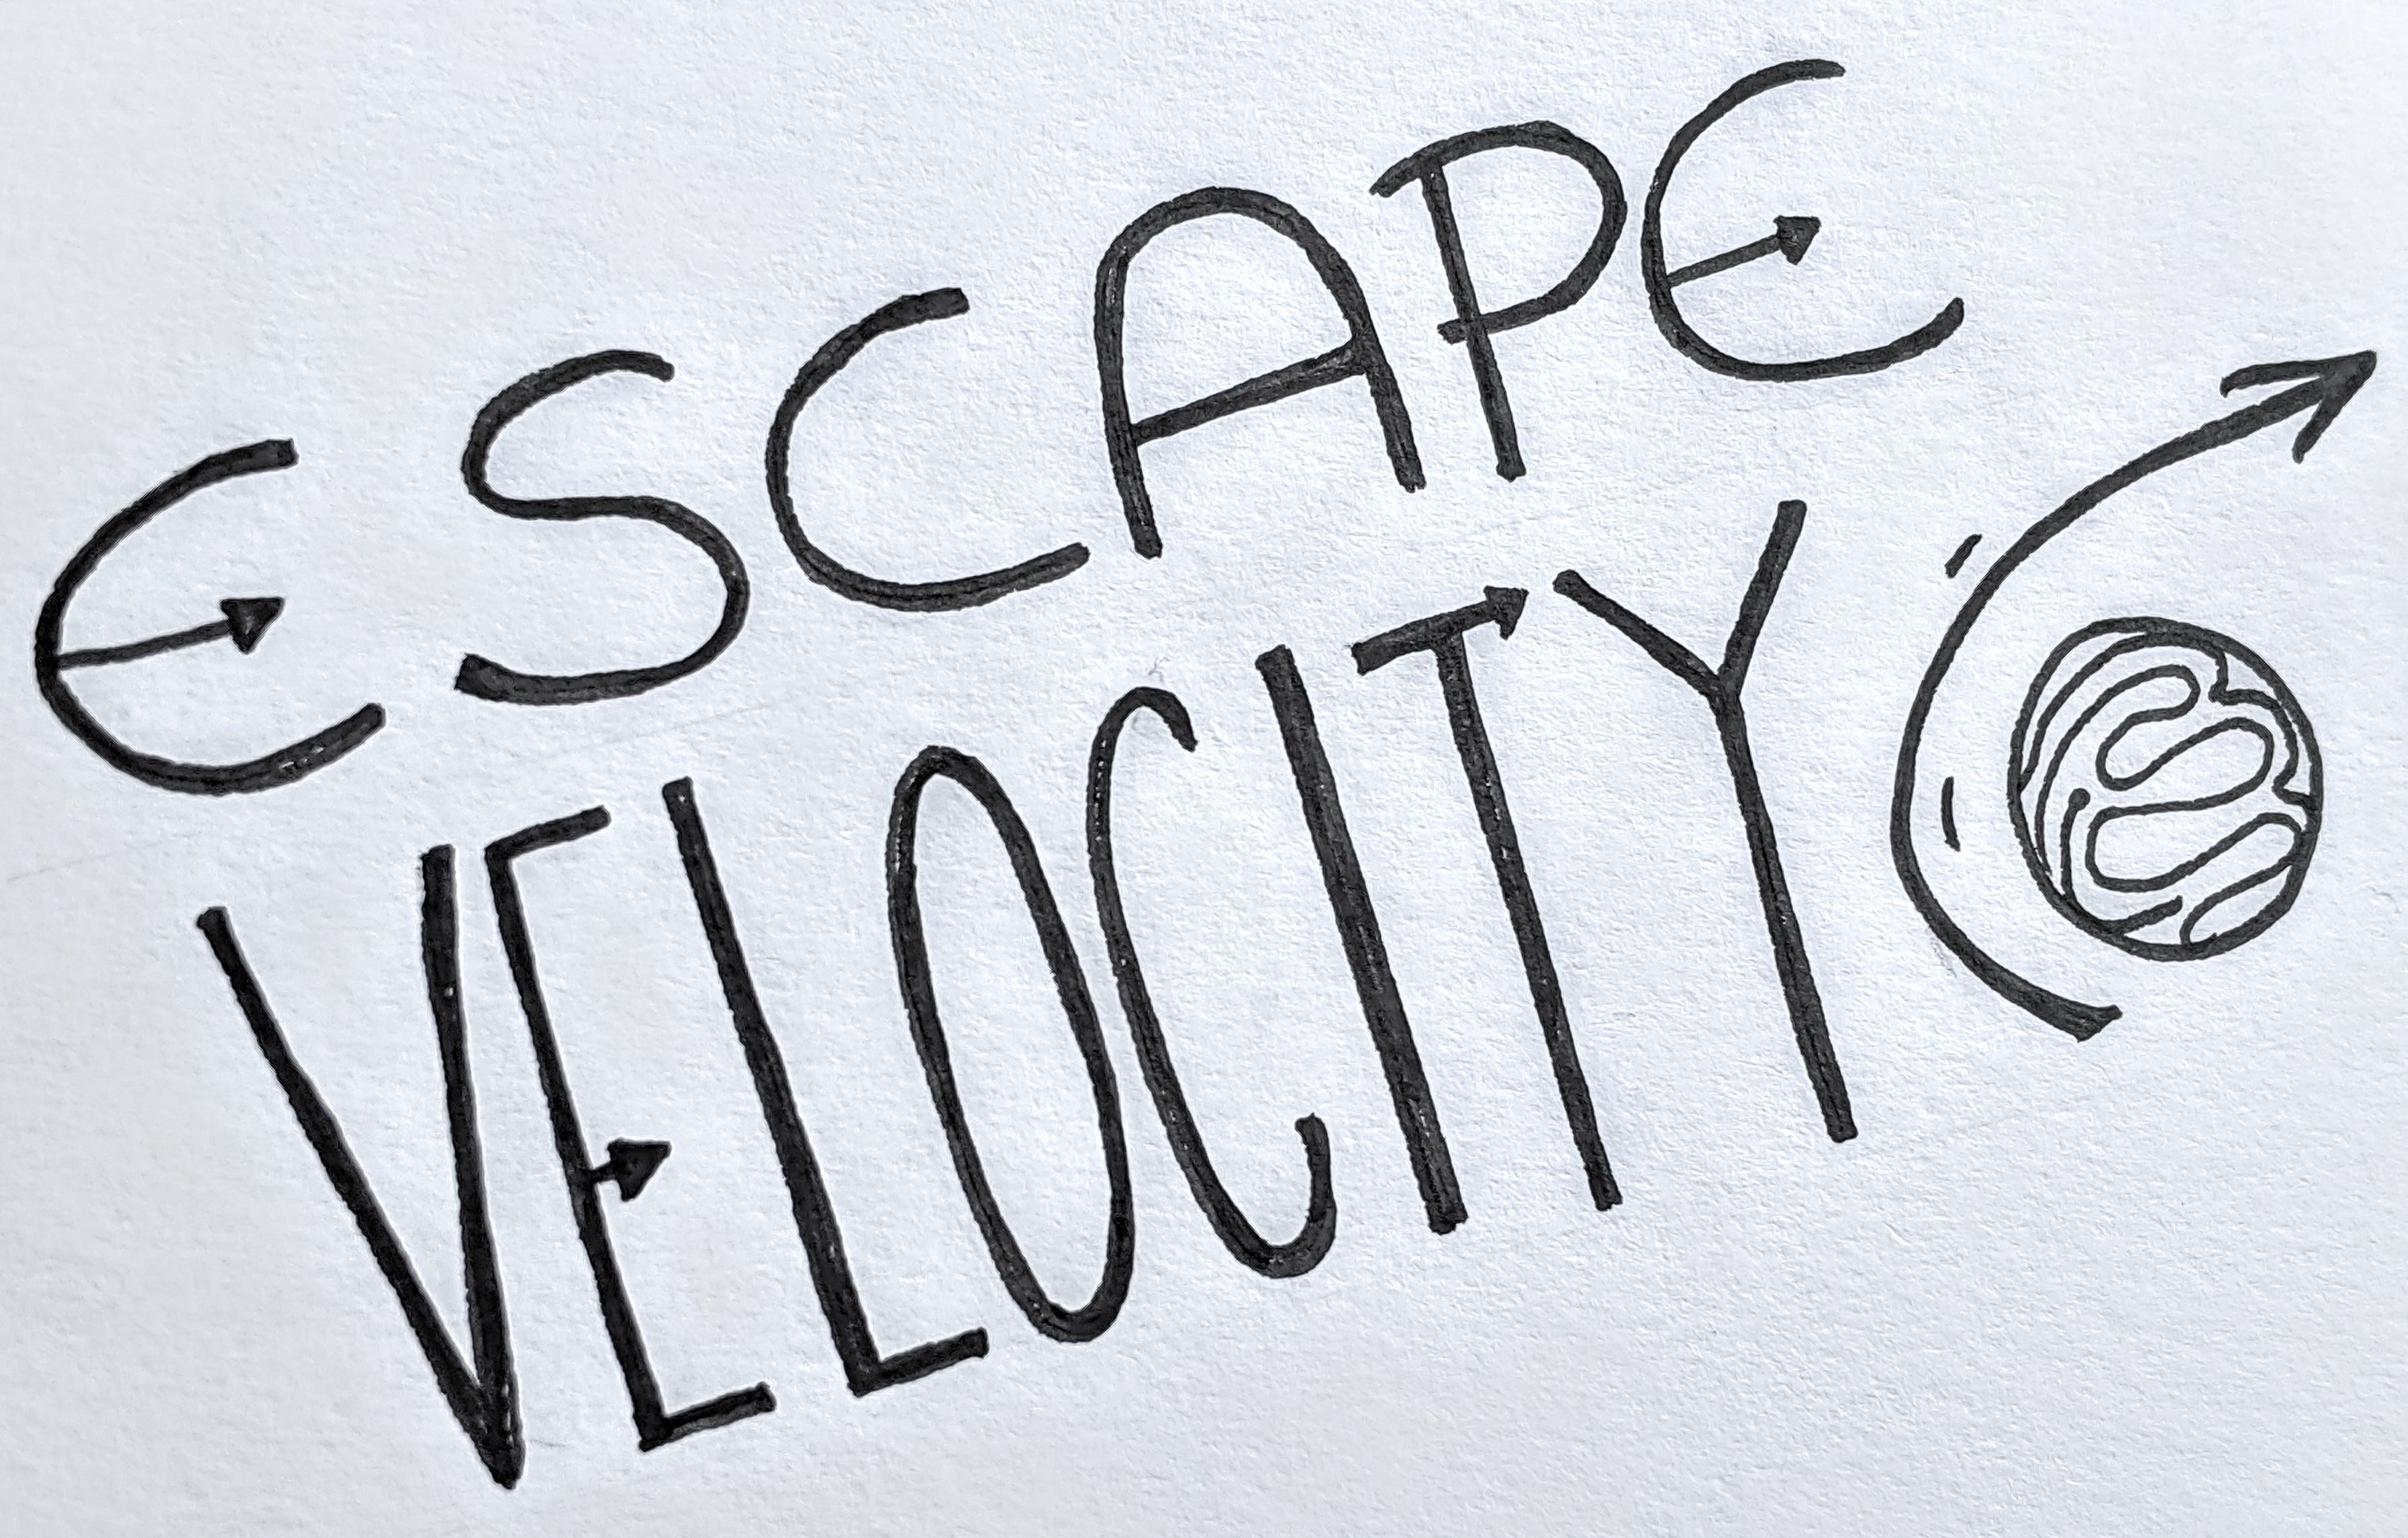 ESCAPE
VELOCITY